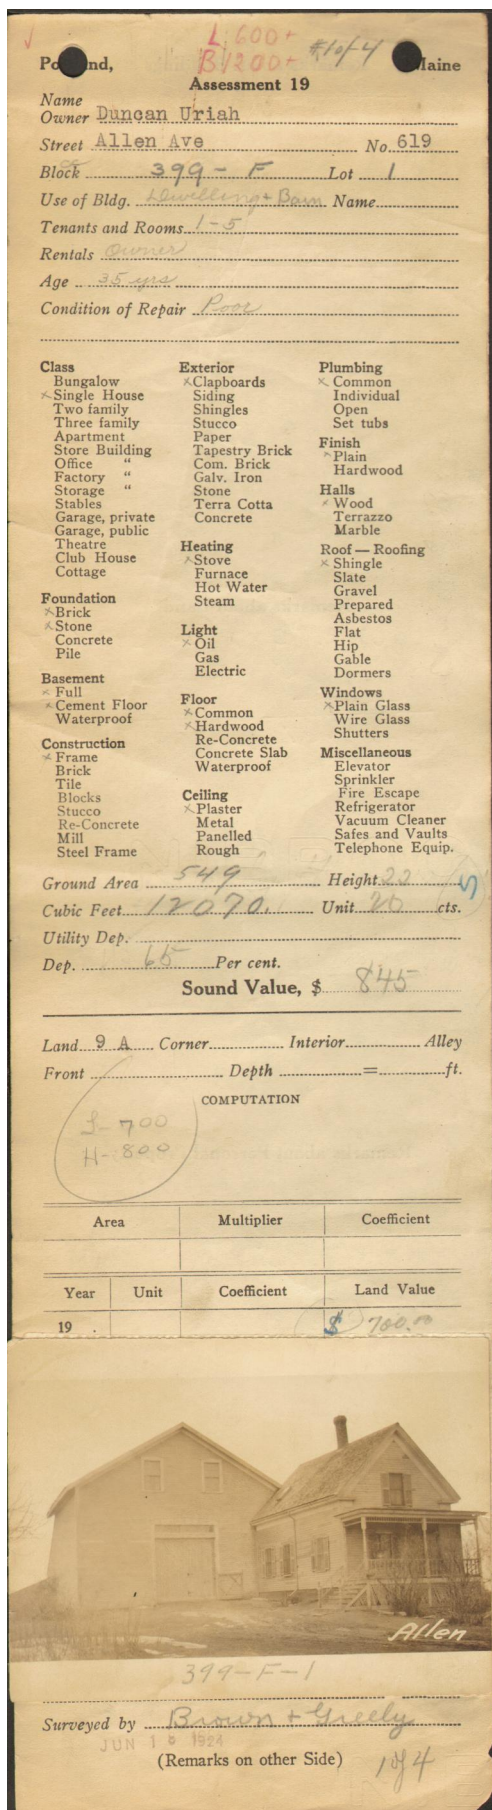 L 600+
B 1200+
#1 of 4
Po nd, Maine
Assessment 19
Name
Owner Duncan Uriah
Street Allen Ave No. 619
Block 399-F Lot 1
Use of Bldg. Dwelling + Barn Name
Tenants and Rooms 1-5
Rentals Owner
Age 35 yrs
Condition of Repair Poor
Class
Bungalow
× Single House
Two family
Three family
Apartment
Store Building
Office "
Factory "
Storage "
Stables
Garage, private
Garage, public
Theatre
Club House
Cottage
Foundation
× Brick
× Stone
Concrete
Pile
Basement
× Full
× Cement Floor
Waterproof
Construction
× Frame
Brick
Tile
Blocks
Stucco
Re-Concrete
Mill
Steel Frame
Exterior
× Clapboards
Siding
Shingles
Stucco
Paper
Tapestry Brick
Com. Brick
Galv. Iron
Stone
Terra Cotta
Concrete
Heating
× Stove
Furnace
Hot Water
Steam
Light
× Oil
Gas
Electric
Floor
× Common
× Hardwood
Re-Concrete
Concrete Slab
Waterproof
Ceiling
× Plaster
Metal
Panelled
Rough
Plumbing
× Common
Individual
Open
Set tubs
Finish
× Plain
Hardwood
Halls
× Wood
Terrazzo
Marble
Roof — Roofing
× Shingle
Slate
Gravel
Prepared
Asbestos
Flat
Hip
Gable
Dormers
Windows
× Plain Glass
Wire Glass
Shutters
Miscellaneous
Elevator
Sprinkler
Fire Escape
Refrigerator
Vacuum Cleaner
Safes and Vaults
Telephone Equip.
Ground Area 549 Height 22
Cubic Feet 12070. Unit 20 cts.
Utility Dep.
Dep. 65 Per cent.
Sound Value, $ 845
Land 9 A Corner Interior Alley
Front Depth = ft.
COMPUTATION
L-700
H-800
Area Multiplier Coefficient
Year Unit Coefficient Land Value
19 $ 700.00
Allen
399-F-1
Surveyed by Brown + Greely
JUN 16 1924
(Remarks on other Side) 1 of 4